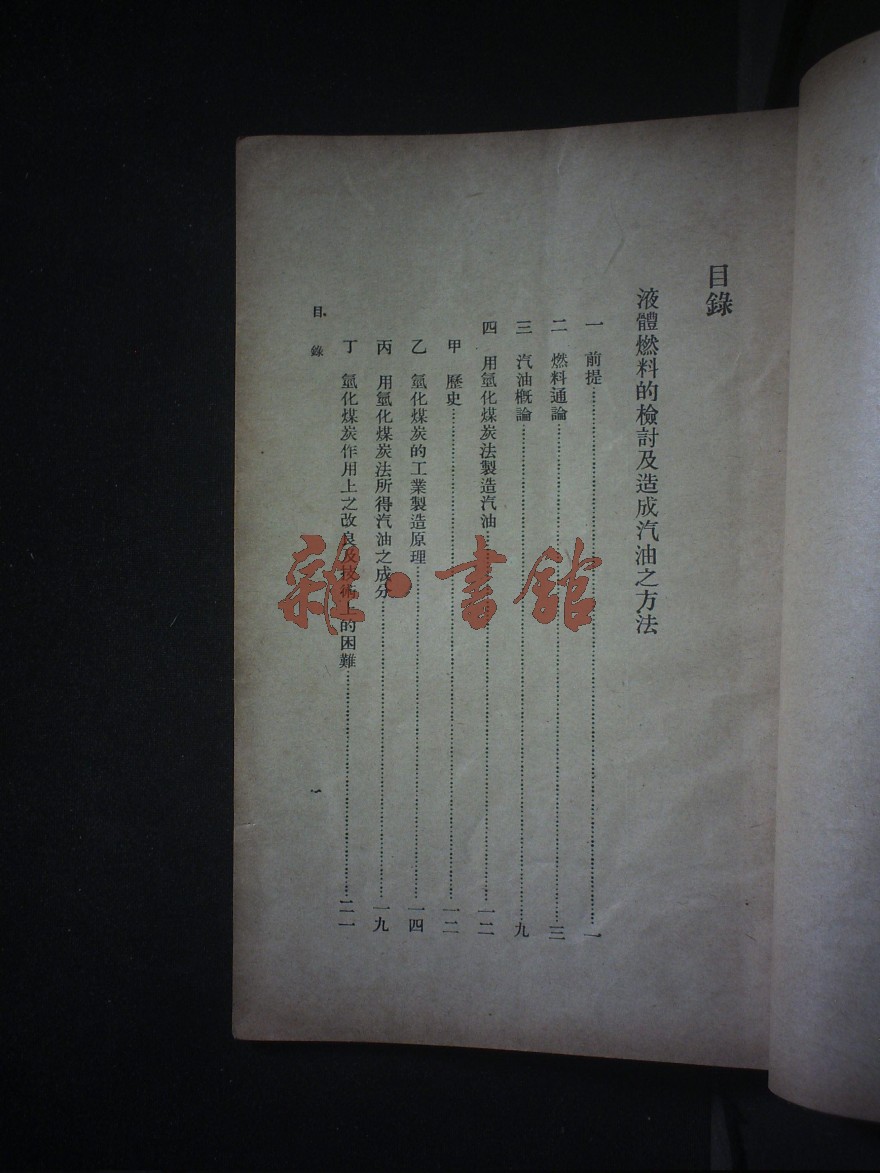 目錄
液體燃料的檢討及造成汽油之方法
一 前提……一
二 燃料通論……三
三 汽油概論……九
四 用氫化煤炭法製造汽油……一二
甲 歷史……一二
乙 氫化煤炭的工業製造原理……一四
丙 用氫化煤炭法所得汽油之成分……一九
丁 氫化煤炭作用上之改良及技術上的困難……二一
目錄
一
雜·書館